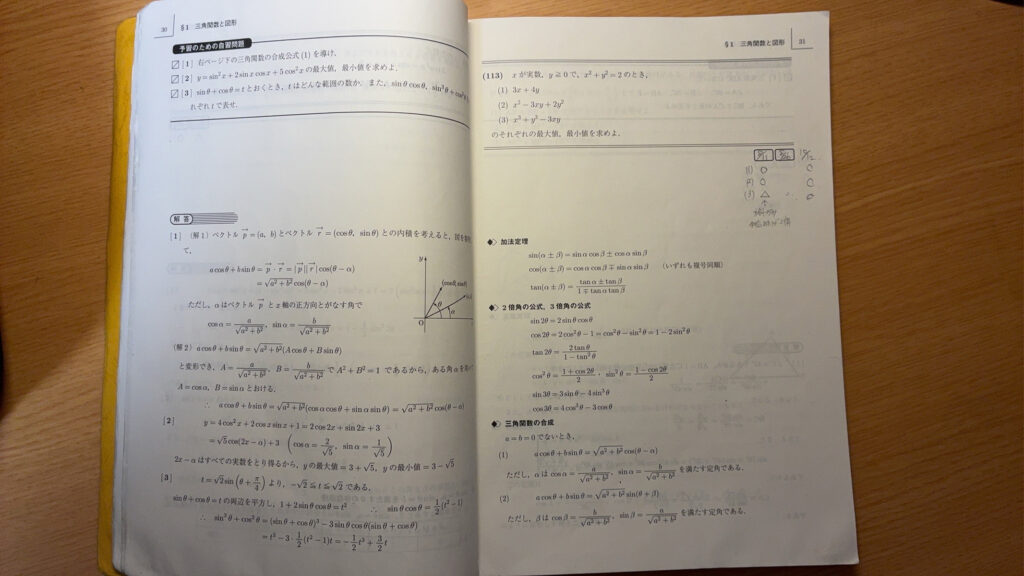 30
§1 三角関数と図形
予習のための自習問題
[1] 右ページ下の三角関数の合成公式(1)を導け.
[2] y=sin²x+2sin x cos x+5cos²x の最大値,最小値を求めよ.
[3] sinθ+cosθ=t とおくとき, t はどんな範囲の数か. また, sinθcosθ, sin³θ+cos³θ
れぞれ t で表せ.
解答
[1] (解1) ベクトル p=(a, b) とベクトル r=(cosθ, sinθ) との内積を考えると,
て,
acosθ+bsinθ=p・r=|p||r|cos(θ−α)
=√(a²+b²)cos(θ−α)
ただし, α はベクトル p と x 軸の正方向とがなす角で
cosα=a/√(a²+b²), sinα=b/√(a²+b²)
y
(cosθ, sinθ)
θ
α
O
(解2) acosθ+bsinθ=√(a²+b²)(Acosθ+Bsinθ)
と変形でき, A=a/√(a²+b²), B=b/√(a²+b²) で A²+B²=1 であるから, ある角 α を
A=cosα, B=sinα とおける.
∴ acosθ+bsinθ=√(a²+b²)(cosαcosθ+sinαsinθ)=√(a²+b²)cos(θ−α)
[2] y=4cos²x+2cos x sin x+1=2cos2x+sin2x+3
=√5cos(2x−α)+3 (cosα=2/√5, sinα=1/√5)
2x−α はすべての実数をとり得るから, y の最大値=3+√5, y の最小値=3−√5
[3] t=√2sin(θ+π/4) より, −√2≦t≦√2 である.
sinθ+cosθ=t の両辺を平方し, 1+2sinθcosθ=t² ∴ sinθcosθ=1/2(t²−1)
∴ sin³θ+cos³θ=(sinθ+cosθ)³−3sinθcosθ(sinθ+cosθ)
=t³−3・1/2(t²−1)t=−1/2t³+3/2t
§1 三角関数と図形
31
(113) x が実数, y≧0 で, x²+y²=2 のとき,
(1) 3x+4y
(2) x²−3xy+2y²
(3) x³+y³−3xy
のそれぞれの最大値, 最小値を求めよ.
(1) ○ ○
(2) ○ ○
(3) △ ○
加法定理
sin(α±β)=sinαcosβ±cosαsinβ
cos(α±β)=cosαcosβ∓sinαsinβ (いずれも複号同順)
tan(α±β)=(tanα±tanβ)/(1∓tanαtanβ)
2倍角の公式, 3倍角の公式
sin2θ=2sinθcosθ
cos2θ=2cos²θ−1=cos²θ−sin²θ=1−2sin²θ
tan2θ=2tanθ/(1−tan²θ)
cos²θ=(1+cos2θ)/2, sin²θ=(1−cos2θ)/2
sin3θ=3sinθ−4sin³θ
cos3θ=4cos³θ−3cosθ
三角関数の合成
a=b=0 でないとき,
(1) acosθ+bsinθ=√(a²+b²)cos(θ−α)
ただし, α は cosα=a/√(a²+b²), sinα=b/√(a²+b²) を満たす定角である.
(2) acosθ+bsinθ=√(a²+b²)sin(θ+β)
ただし, β は cosβ=b/√(a²+b²), sinβ=a/√(a²+b²) を満たす定角である.